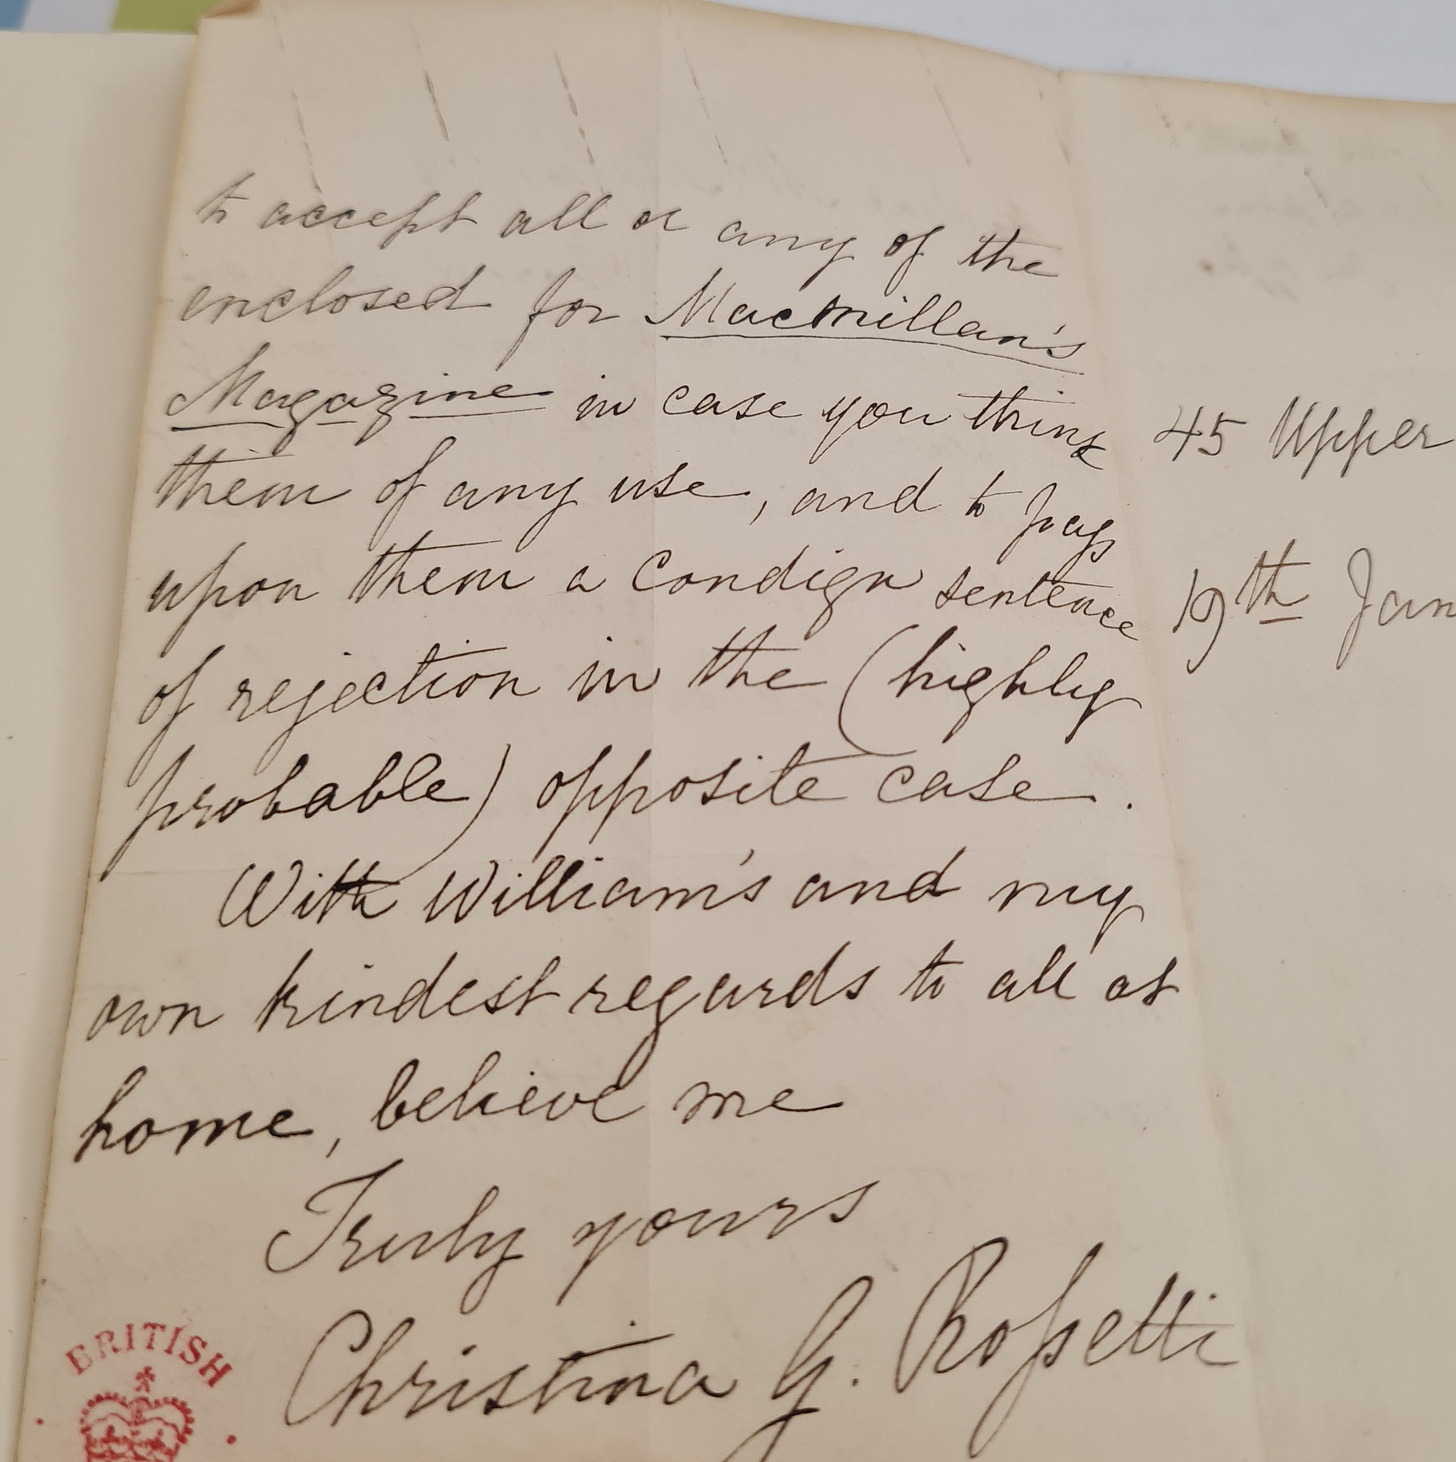 to accept all or any of the
enclosed for Macmillan's
Magazine in case you think
them of any use, and to pass
upon them a condign sentence
of rejection in the (highly
probable) opposite case.
With William's and my
own kindest regards to all at
home, believe me
Truly yours
Christina G. Rossetti
BRITISH
45 Upper
19th Jan